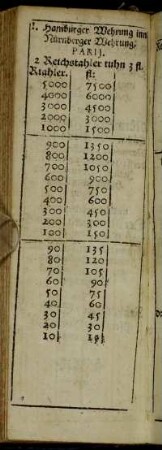 1. Hamburger Wehrung inn
Nürnberger Wehrung.
PARI].
2 Reichstahler tuhn 3 fl.
Rtahler. fl:
5000 7500
4000 6000
3000 4500
2000 3000
1000 1500
900 1350
800 1200
700 1050
600 900
500 750
400 600
300 450
200 300
100 150
90 135
80 120
70 105
60 90
50 75
40 60
30 45
20 30
10 15